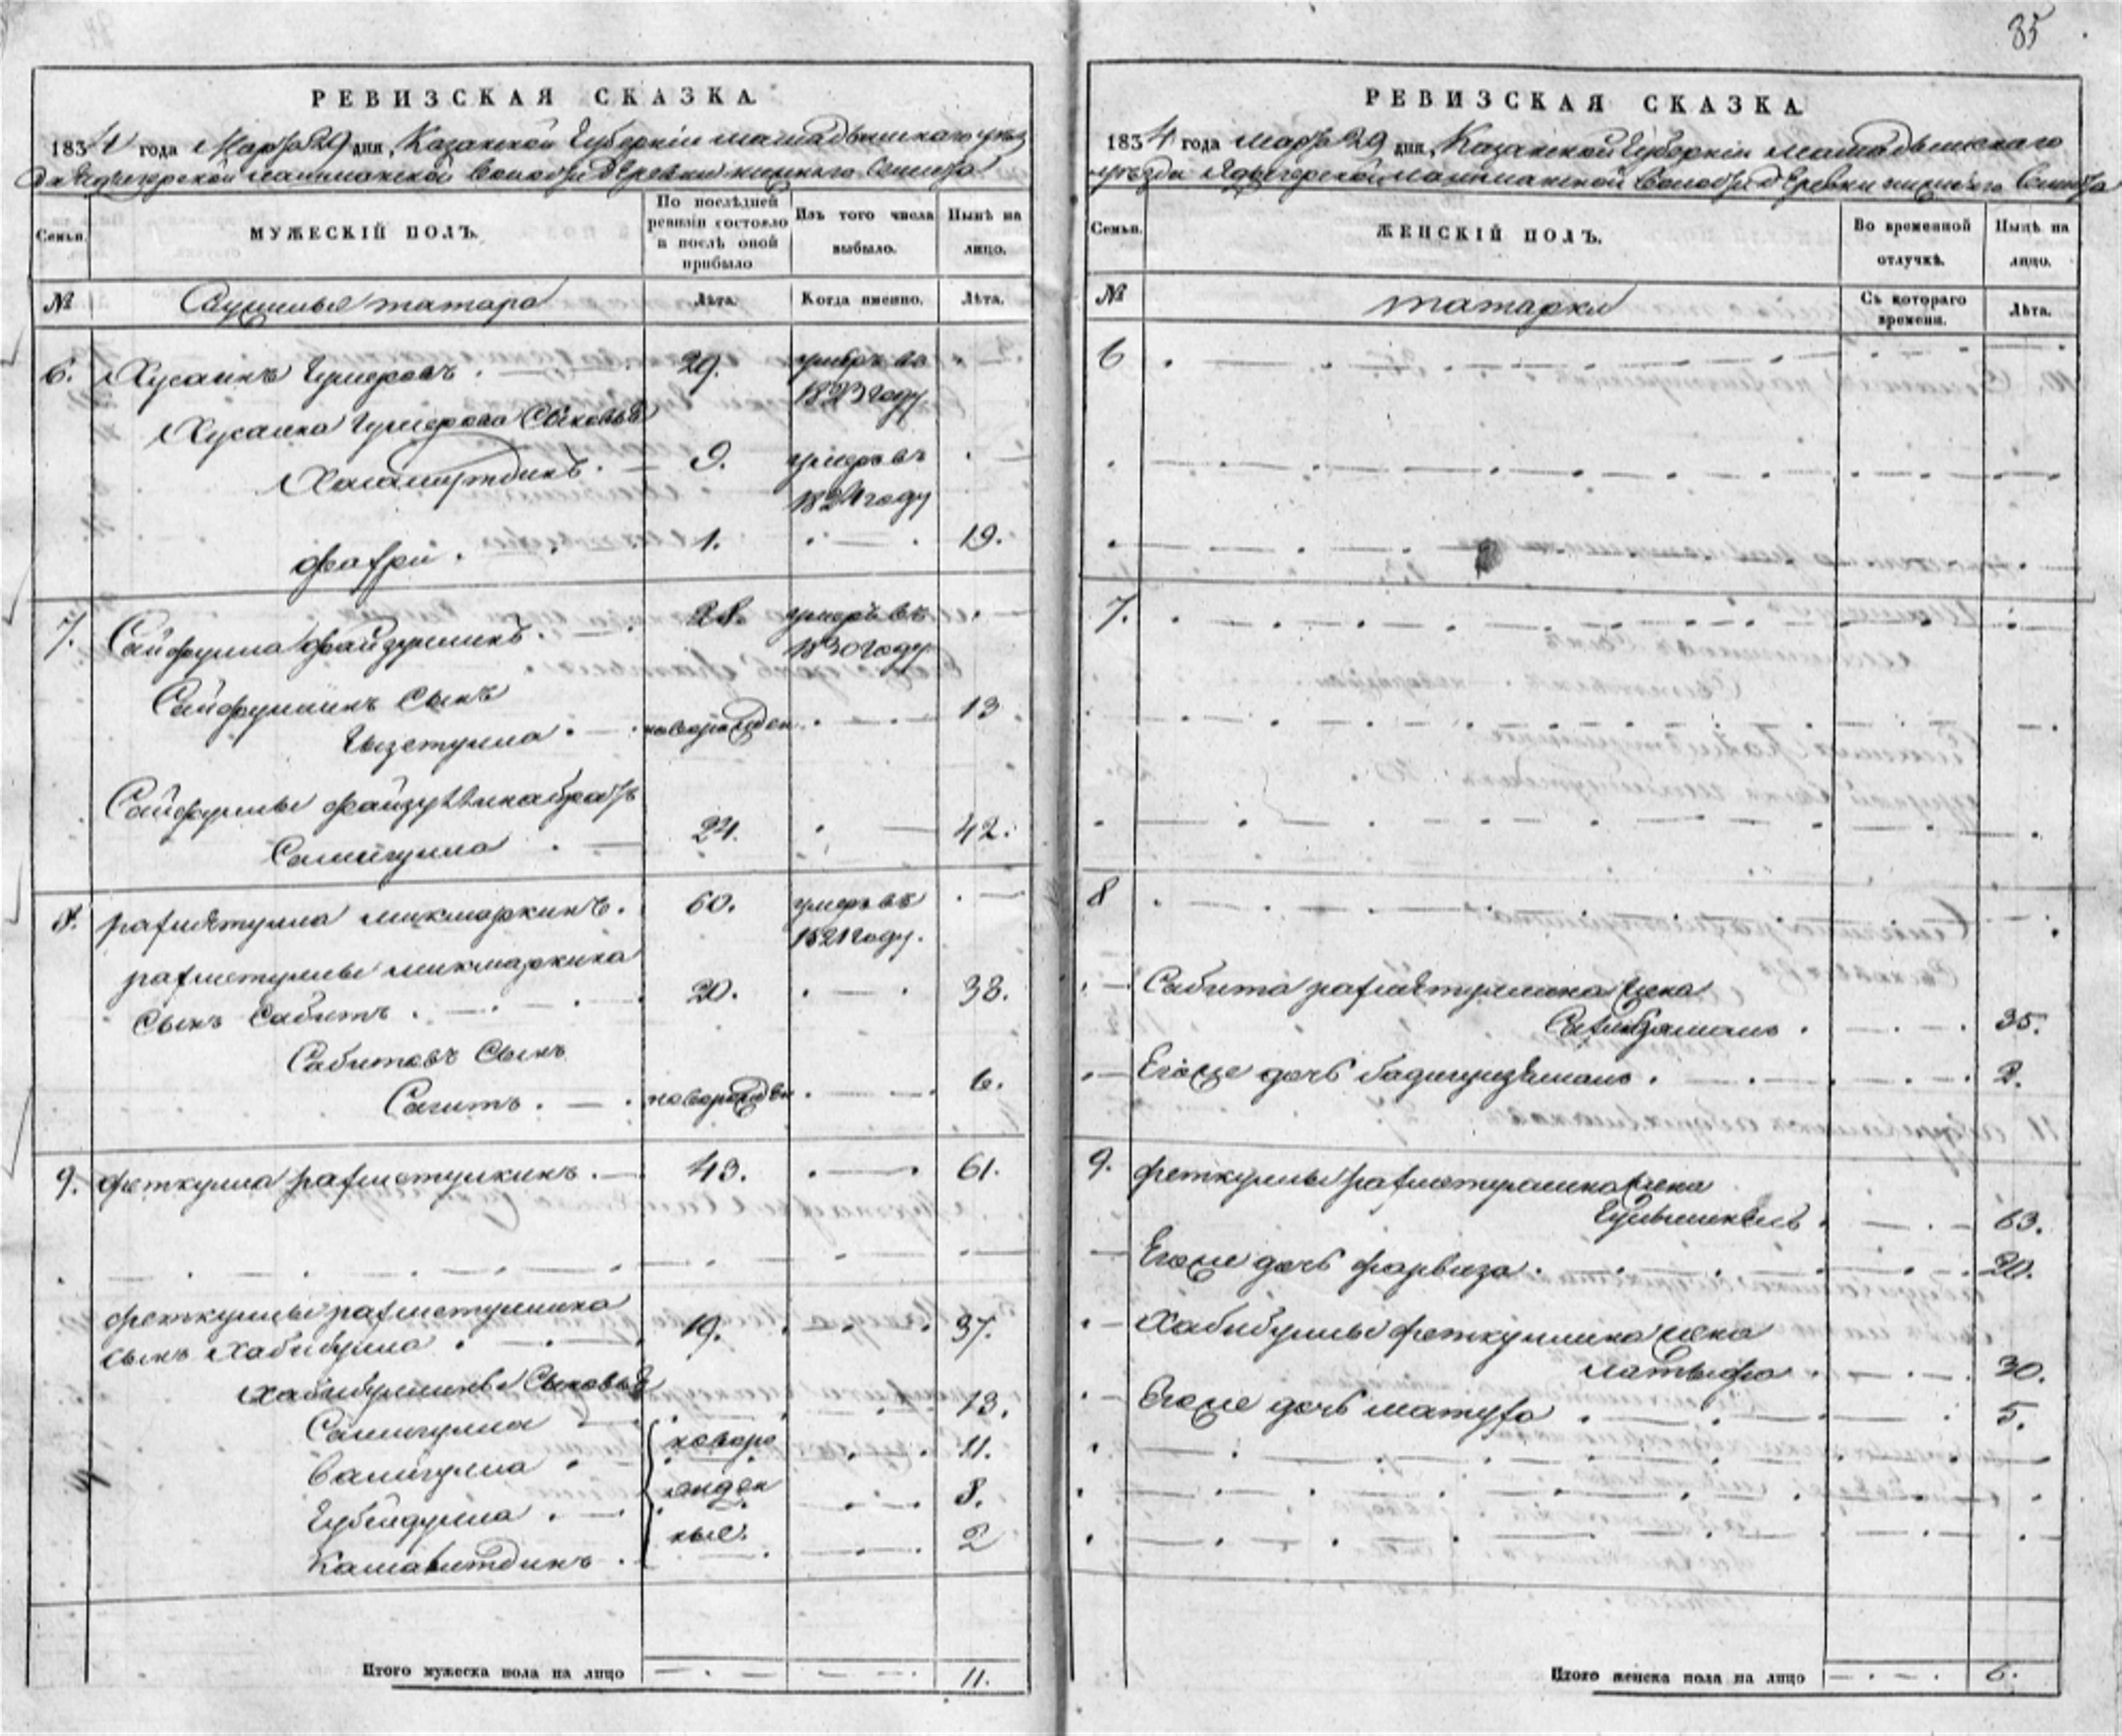 35
РЕВИЗСКАЯ СКАЗКА.
1834 года Марта 29 дня, Казанской Губернии Мамадышскаго уез
да Ядыгерской волости Деревни
Семьи.
МУЖЕСКІЙ ПОЛЪ.
По послѣдней ревизіи состояло и послѣ оной прибыло
Изъ того числа выбыло.
Нынѣ на лицо.
№
татара
Лѣта.
Когда именно.
Лѣта.
6. Хусаинъ Гумеровъ. 29. умеръ въ
1823 году.
Хусаина Гумерова Сыновья
9. умеръ въ
1824 году
1. 19.
7. Сайфулла Файзуллинъ. 28. умеръ въ
1830 году.
Сайфуллинъ Сынъ
Гизетулла новорожден. 13.
Сайфуллы Файзуллина братъ
Самигулла 24. 42.
8. рахметулла микмаркинъ. 60. умеръ въ
1821 году.
рахметуллы микмаркина
Сынъ Сабитъ. 20. 38.
Сабитовъ Сынъ
Сагитъ. новорожден 6.
9. феткулла рахметуллинъ. 43. 61.
феткуллы рахметуллина
сынъ Хабибулла. 19. 37.
Хабибуллины Сыновья
Самигулла 13.
Валигулла новоро 11.
Губейдулла жден 8.
ные. 2
Итого мужеска пола на лицо 11.
РЕВИЗСКАЯ СКАЗКА.
1834 года марта 29 дня, Казанской Губернии Мамадышскаго
уезда Ядыгерской волости Деревни
Семьи.
ЖЕНСКІЙ ПОЛЪ.
Во временной отлучкѣ.
Нынѣ на лицо.
№
татарки
Съ котораго времени.
Лѣта.
6
7.
8
Сабита рахметуллина жена
35.
Егоже дочь 2.
9. феткуллы рахметуллина жена
63.
Егоже дочь фарвиза. 20.
Хабибуллы феткуллина жена
латыфа 30.
Егоже дочь 5.
Итого женска пола на лицо 6.